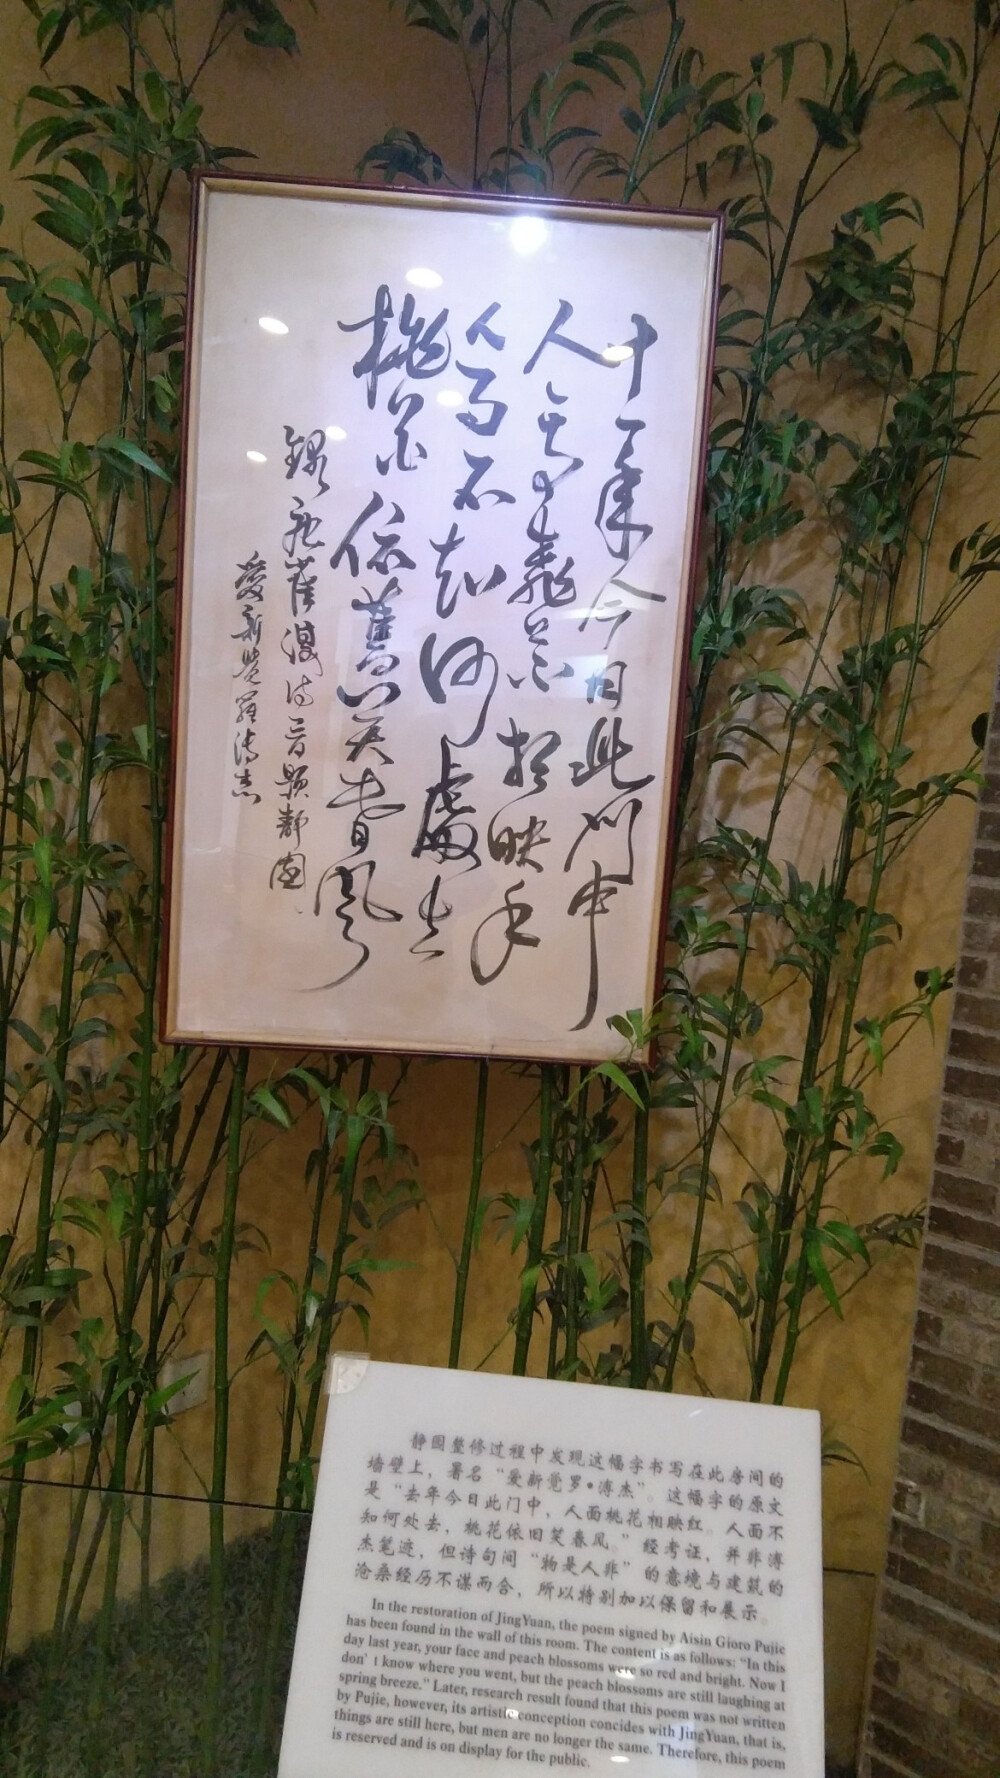 去年今日此门中
人面桃花相映红
人面不知何處去
桃花依舊笑春風
錄唐崔護诗一首题靜園
愛新覺羅溥杰
静园整修过程中发现这幅字书写在此房间的
墙壁上，署名“爱新觉罗•溥杰”。这幅字的原文
是“去年今日此门中，人面桃花相映红。人面不
知何处去，桃花依旧笑春风。”经考证，并非溥
杰笔迹，但诗句间“物是人非”的意境与建筑的
沧桑经历不谋而合，所以特别加以保留和展示。
In the restoration of JingYuan, the poem signed by Aisin Gioro Pujie
has been found in the wall of this room. The content is as follows: "In this
day last year, your face and peach blossoms were so red and bright. Now I
don't know where you went, but the peach blossoms are still laughing at
spring breeze." Later, research result found that this poem was not written
by Pujie, however, its artistic conception concides with JingYuan, that is,
things are still here, but men are no longer the same. Therefore, this poem
is reserved and is on display for the public.